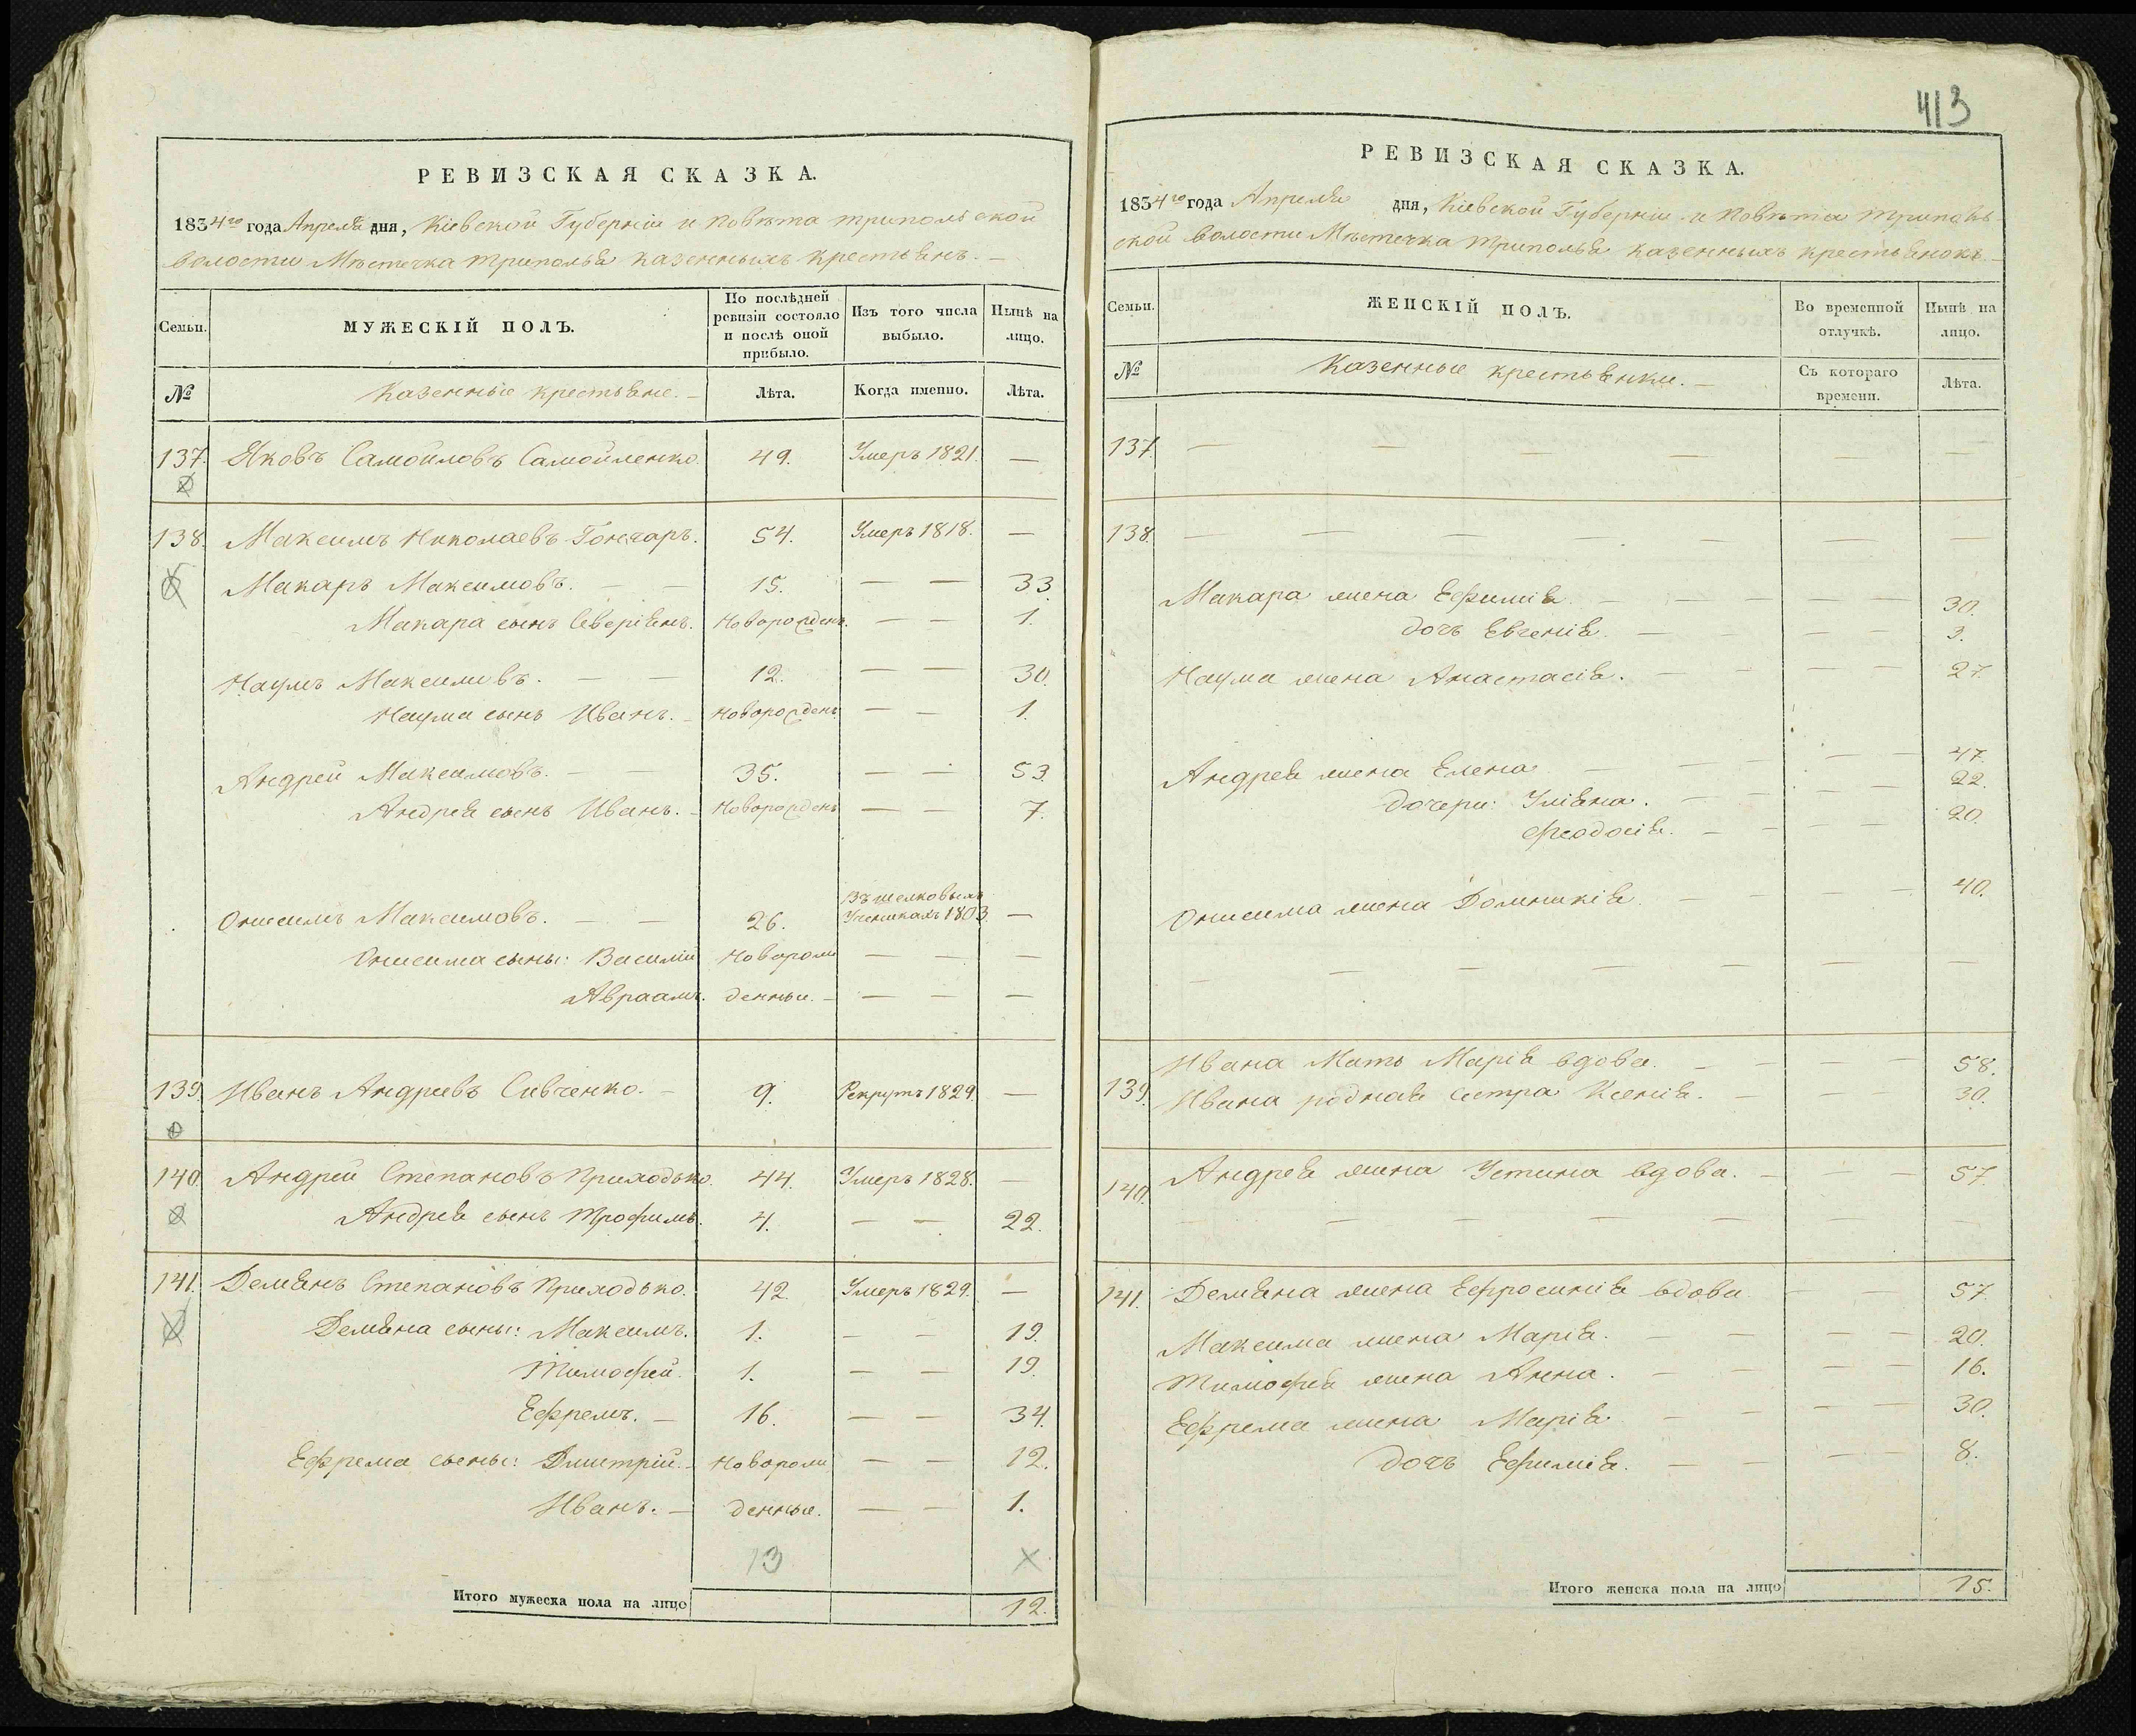 413
РЕВИЗСКАЯ СКАЗКА.
1834го года Апреля дня, Кіевской Губерніи и Повѣта Трипольской
волости Мѣстечка Триполья казенныхъ крестьянъ. —
Семьи. МУЖЕСКІЙ ПОЛЪ. По послѣдней ревизіи состояло и послѣ оной прибыло. Изъ того числа выбыло. Нынѣ на лицо.
№ Казенные крестьяне. — Лѣта. Когда именно. Лѣта.
137. Яковъ Самойловъ Самойленко. 49. Умеръ 1821. —
138. Максимъ Николаевъ Гончаръ. 54. Умеръ 1818. —
Макаръ Максимовъ. — — 15. — — 33.
Макара сынъ Северіянъ. Новорожденъ. — — 1.
Наумъ Максимовъ. — — 12. — — 30.
Наума сынъ Иванъ. — Новорожденъ — — 1.
Андрей Максимовъ. — — 35. — — 53.
Андрея сынъ Иванъ. — Новорожденъ — — 7.
Онисимъ Максимовъ. — — 26. Въ шелковыхъ Ученикахъ 1803. —
Онисима сыны: Василій Новорож — — —
Авраамъ. денные. — — — —
139. Иванъ Андреевъ Савченко. — 9. Рекрутъ 1829. —
140. Андрей Степановъ Приходько. 44. Умеръ 1828. —
Андрея сынъ Трофимъ. 4. — — 22.
141. Демянъ Степановъ Приходько. 42. Умеръ 1829. —
Демяна сыны: Максимъ. 1. — — 19.
Тимофей. 1. — — 19.
Ефремъ. — 16. — — 34.
Ефрема сыны: Дмитрій. — Новорож — — 12.
Иванъ. — денные. — — 1.
13 ×
Итого мужеска пола на лицо 12.
РЕВИЗСКАЯ СКАЗКА.
1834го года Апреля дня, Кіевской Губерніи и Повѣта Триполь-
ской волости Мѣстечка Триполья казенныхъ крестьянокъ —
Семьи. ЖЕНСКІЙ ПОЛЪ. Во временной отлучкѣ. Нынѣ на лицо.
№ Казенные крестьянки. — Съ котораго времени. Лѣта.
137. — — — — — —
138. — — — — — —
Макара жена Ефимія. — — — — 30.
дочь Евгенія. — — — — 3.
Наума жена Анастасія. — — — — 27.
Андрея жена Елена — — — — 47.
дочери: Уліяна. — — — — 22.
Феодосія. — — — — 20.
Онисима жена Домникія — — — — 40.
— — — — — — —
139. Ивана Мать Марія вдова. — — — — 58.
Ивана родная сестра Ксенія. — — — 30.
140. Андрея жена Устина вдова. — — — 57.
— — — — — — —
141. Демяна жена Ефросинія вдова — — 57.
Максима жена Марія. — — — — 20.
Тимофея жена Анна. — — — — 16.
Ефрема жена Марія. — — — — 30.
дочь Ефимія. — — — — 8.
Итого женска пола на лицо 15.